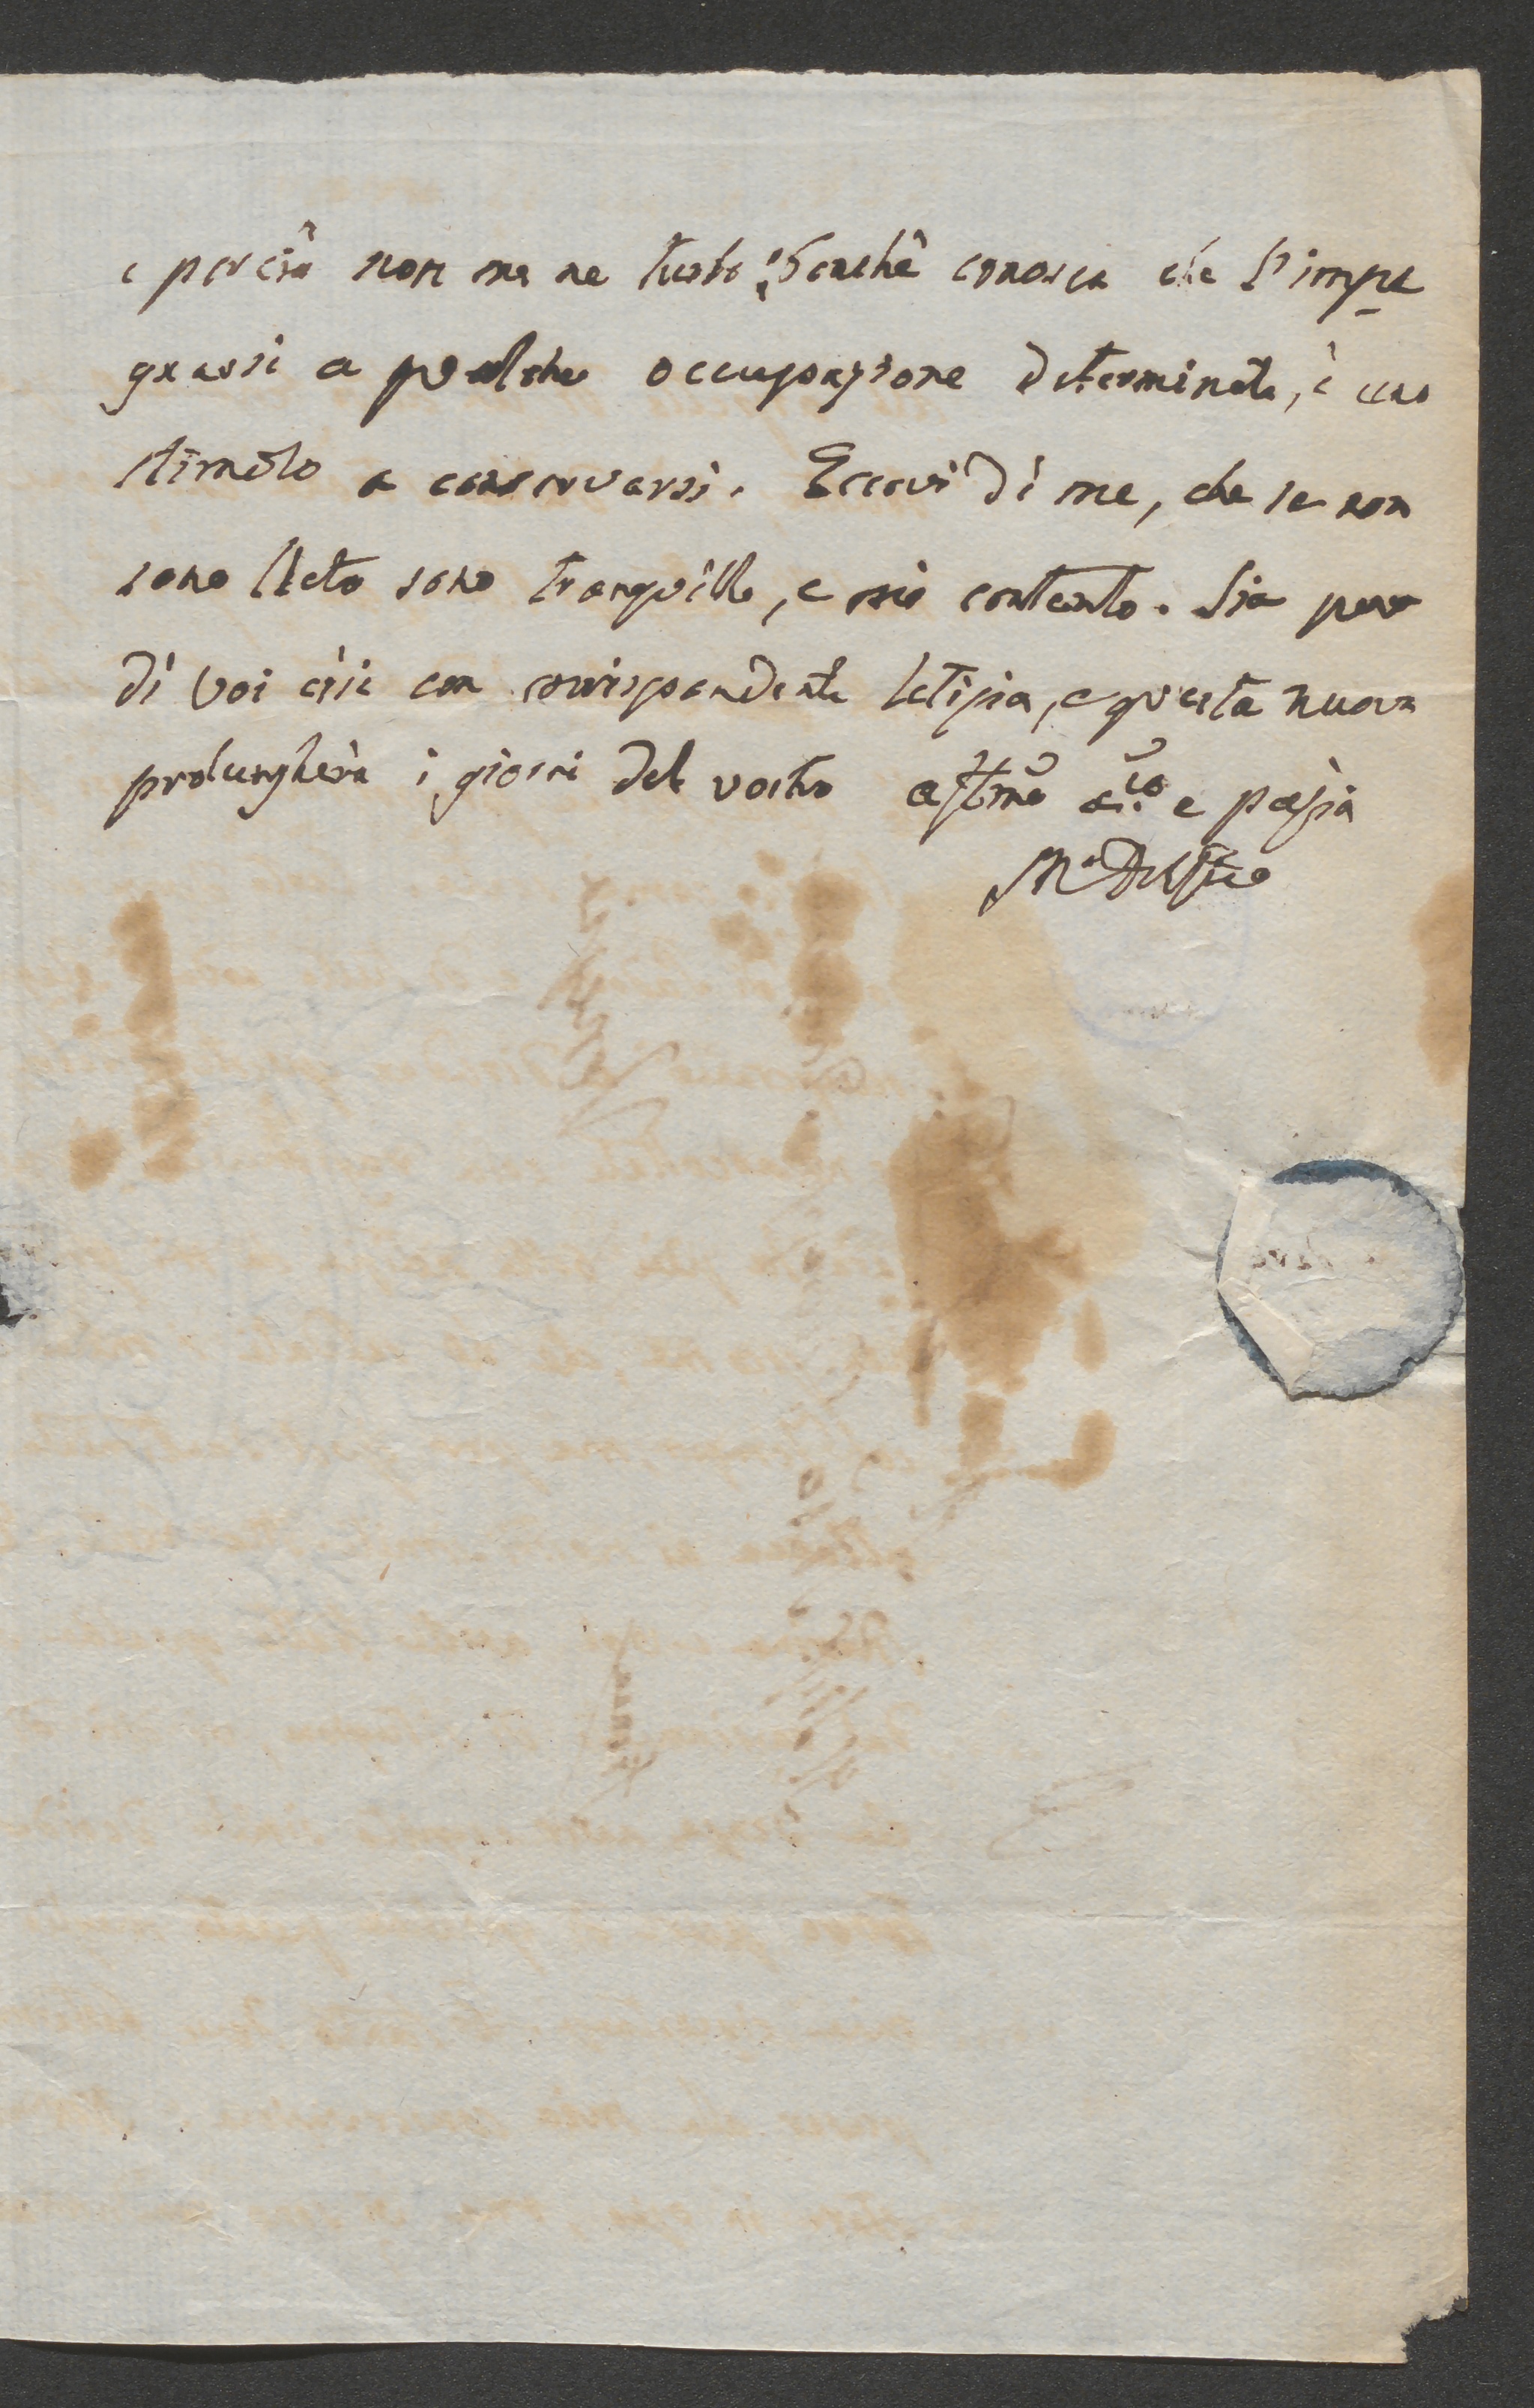 e perciò non me ne turbo; benchè conosca che l'impe
gnarsi a qualche occupazione determinata, è uno
stimolo a conservarsi. Eccovi di me, che se non
sono lieto sono tranquillo, e mio contento. Sia pur
di voi così con corrispondente letizia, e questa nuova
prolungherà i giorni del vostro affmo aico e
M. Delfico